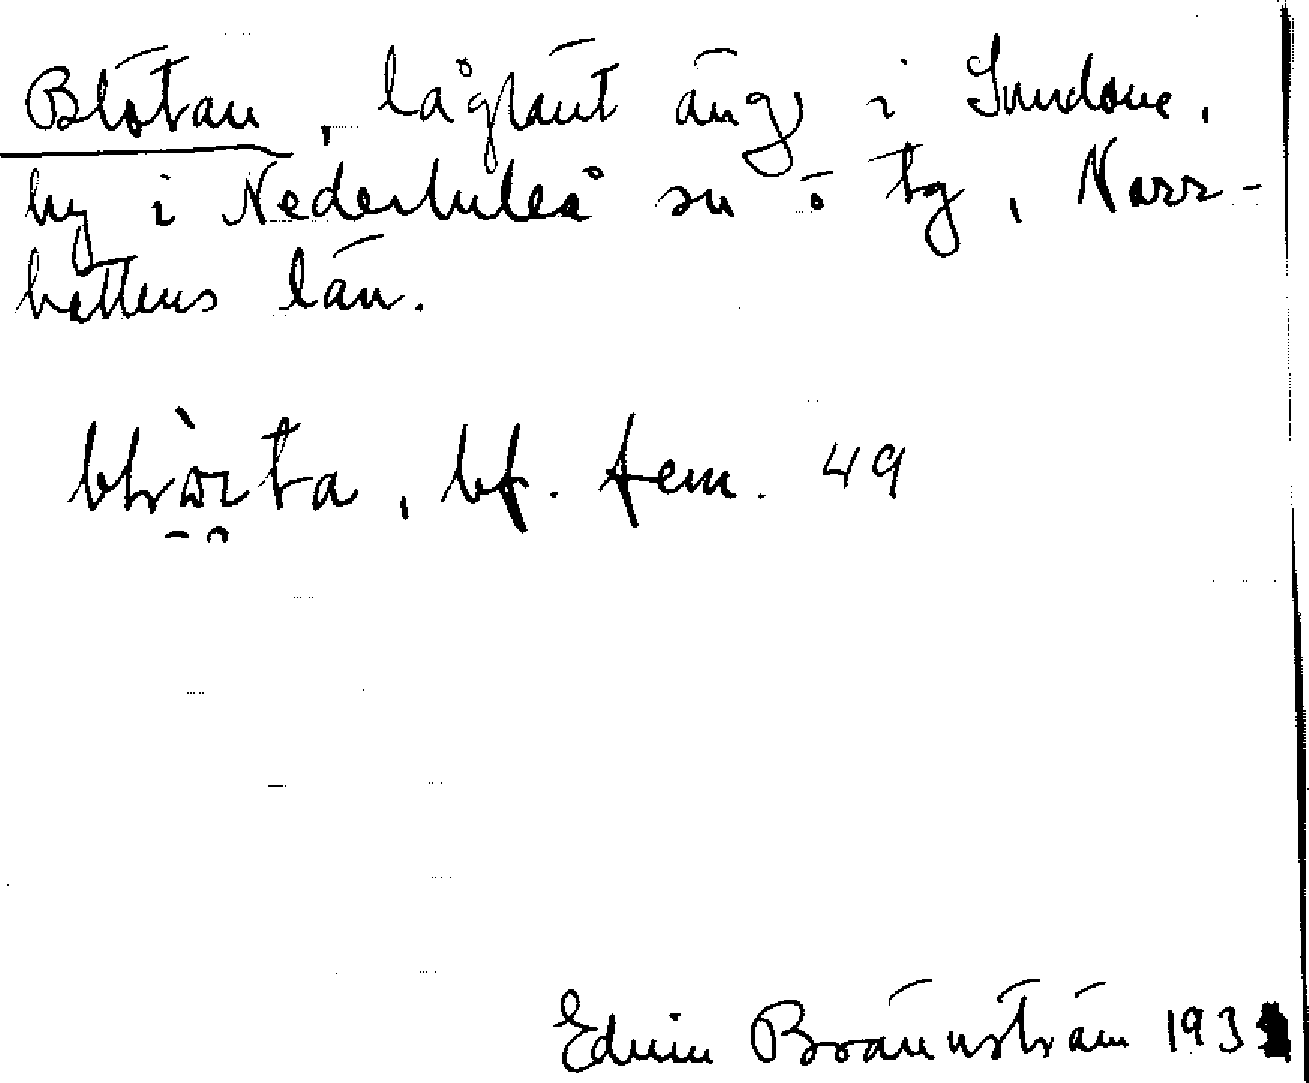 Blötan, låglänt äng i Sundom,
by i Nederluleå sn o tg, Norr-
bottens län.
bf. fem. 49
Edvin Brännström 193